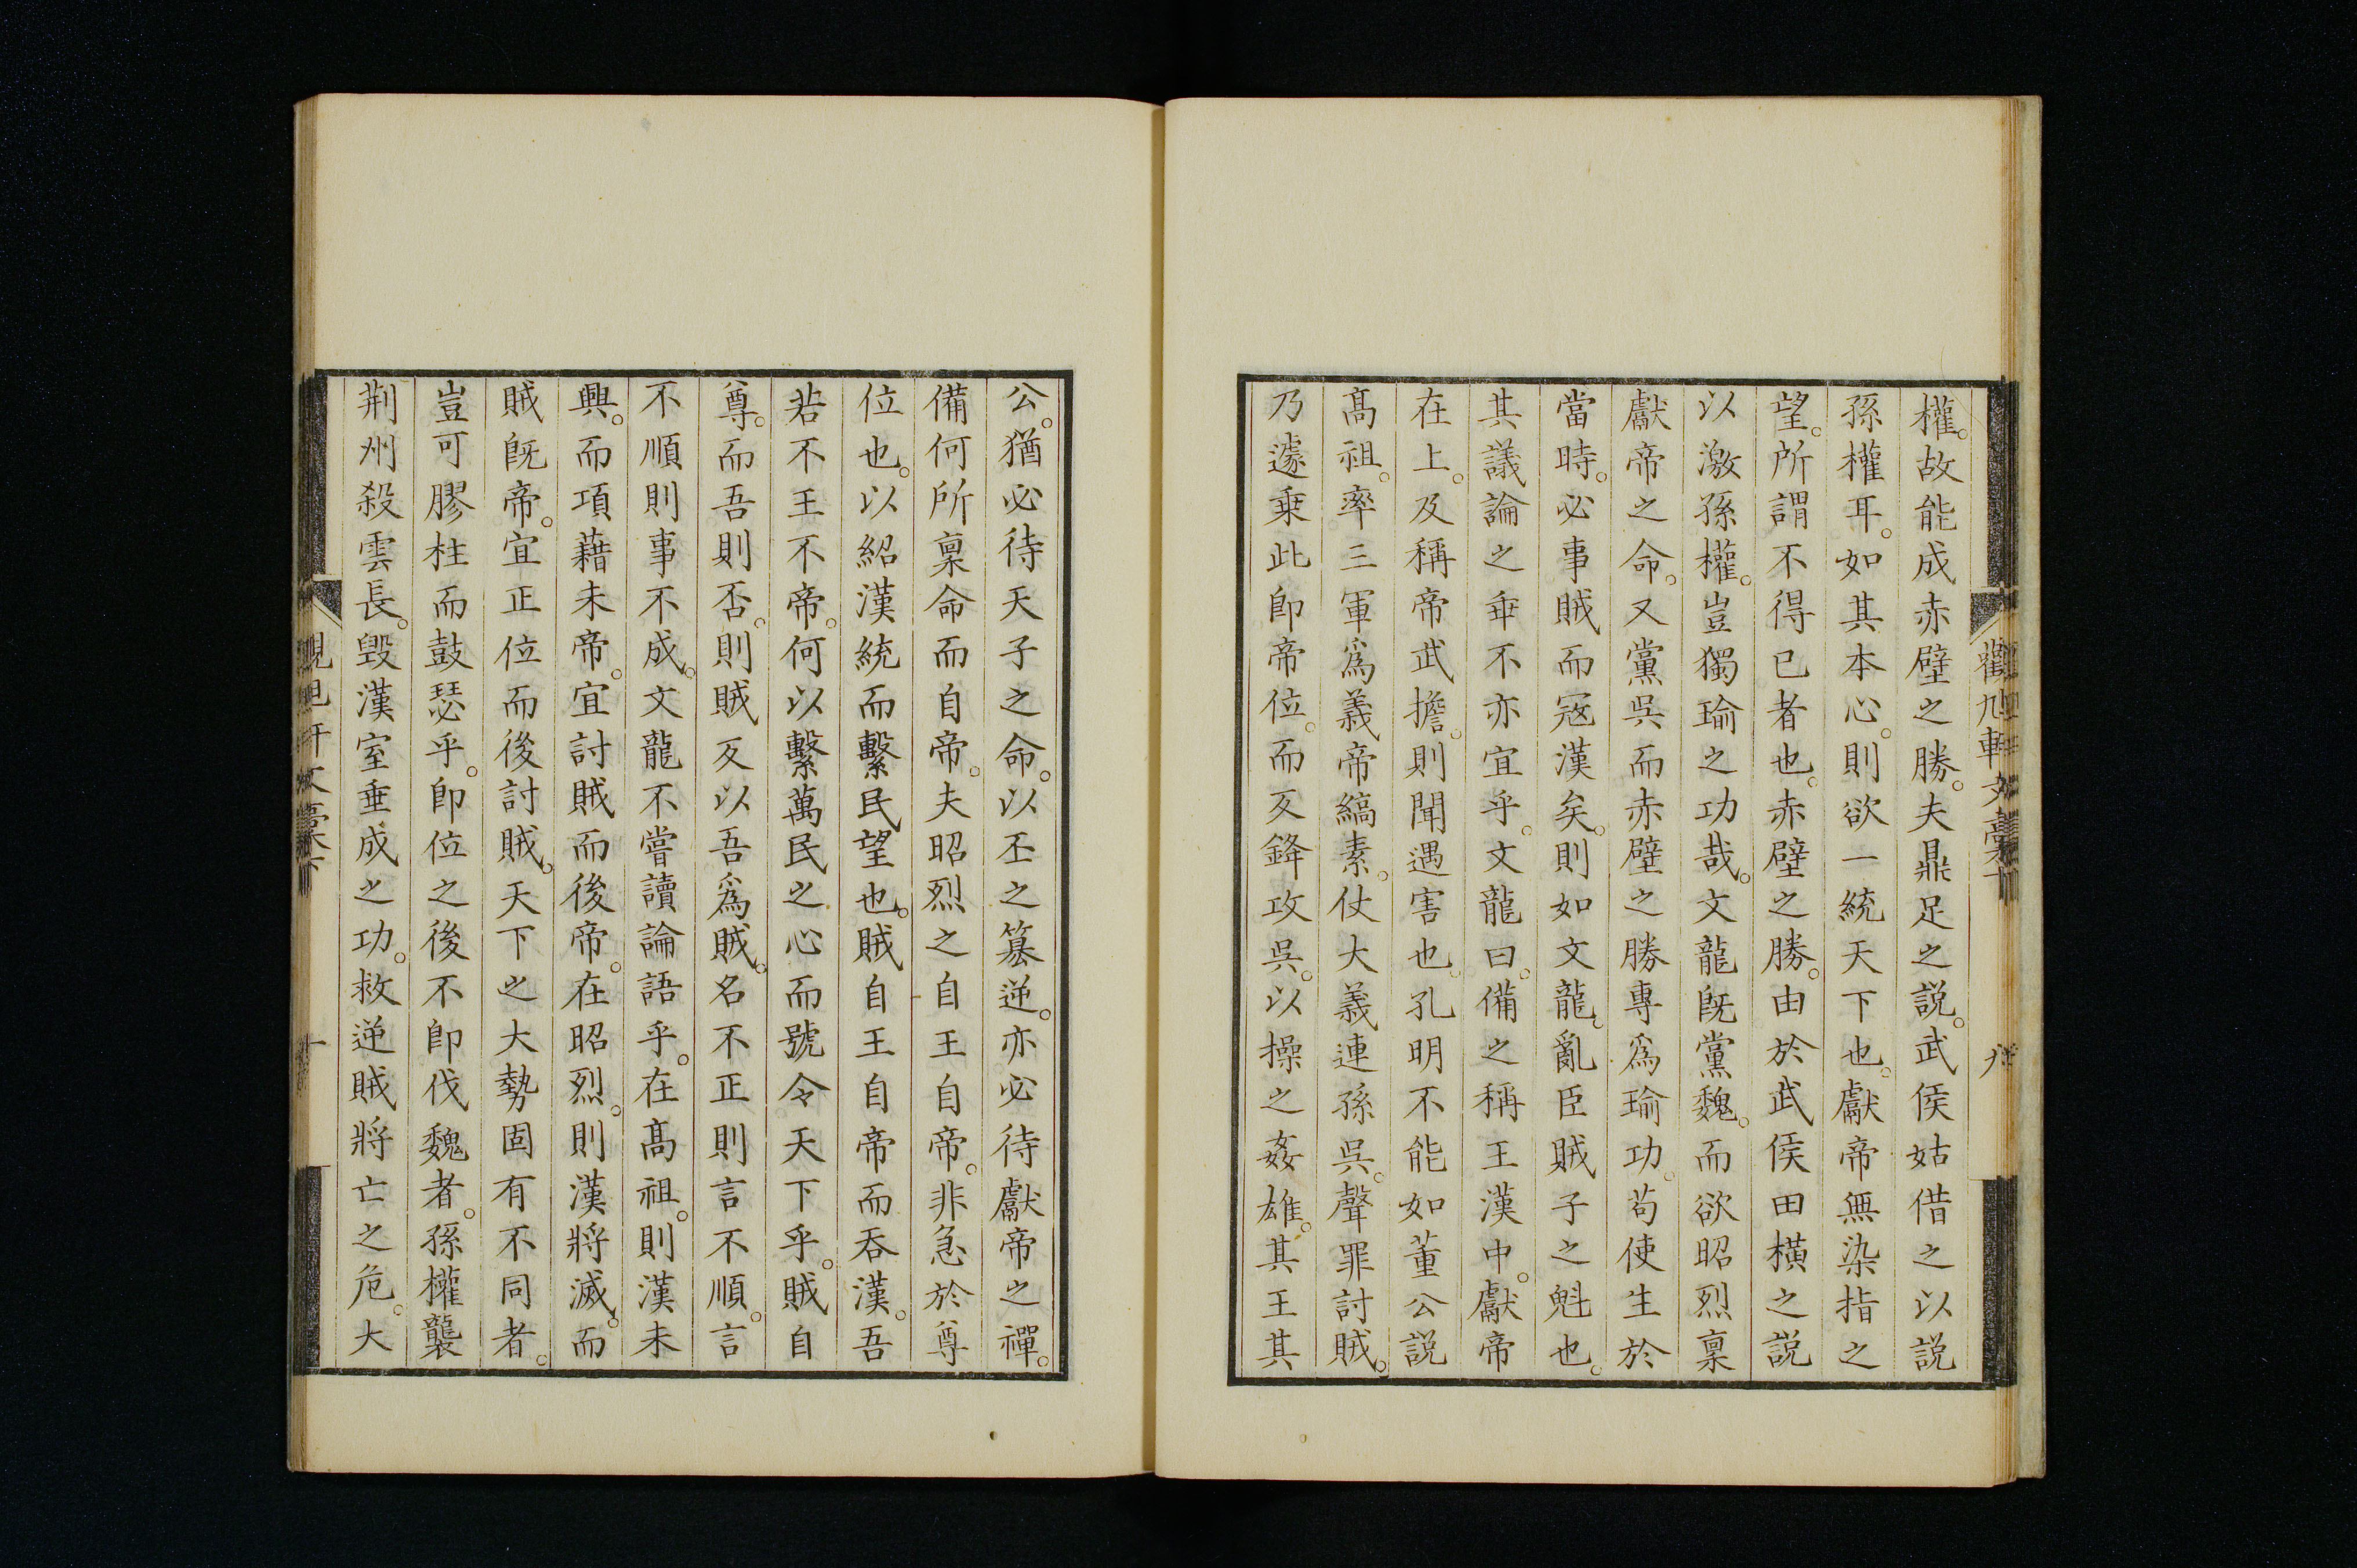 權。故能成赤壁之勝。夫鼎足之説。武侯姑借之以説
孫權耳。如其本心。則欲一統天下也。獻帝無染指之
望。所謂不得已者也。赤壁之勝。由於武侯田橫之説
以激孫權。豈獨瑜之功哉。文龍既黨魏。而欲昭烈稟
獻帝之命。又黨吳而赤壁之勝專爲瑜功。苟使生於
當時。必事賊而寇漢矣。則如文龍。亂臣賊子之魁也。
其議論之乖不亦宜乎。文龍曰。備之稱王漢中。獻帝
在上。及稱帝武擔。則聞遇害也。孔明不能如董公説
髙祖。率三軍爲義帝縞素。仗大義連孫吳。聲罪討賊。
乃遽乗此即帝位。而反鋒攻吳。以操之姦雄。其王其
公。猶必待天子之命。以丕之簒逆。亦必待獻帝之禪。
備何所稟命而自帝。夫昭烈之自王自帝。非急於尊
位也。以紹漢統而繫民望也。賊自王自帝而吞漢。吾
若不王不帝。何以繫萬民之心而號令天下乎。賊自
尊。而吾則否。則賊反以吾爲賊。名不正則言不順。言
不順則事不成。文龍不嘗讀論語乎。在髙祖。則漢未
興。而項藉未帝。宜討賊而後帝。在昭烈。則漢將滅。而
賊既帝。宜正位而後討賊。天下之大勢固有不同者。
豈可膠柱而鼓瑟乎。即位之後不即伐魏者。孫權襲
荆州殺雲長。毀漢室垂成之功。救逆賊將亡之危。大